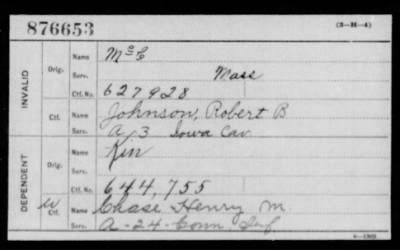 876653
(3-H-4)
INVALID
Orig.
Name
McC
Serv.
Mass
Ctf. No.
627928
Ctf.
Name
Johnson, Robert B
Serv.
A, 3 Iowa Cav
DEPENDENT
Orig.
Name
Kin
Serv.
Ctf. No.
644,755
W
Ctf.
Name
Chase Henry M.
Serv.
A-24-Conn Inf